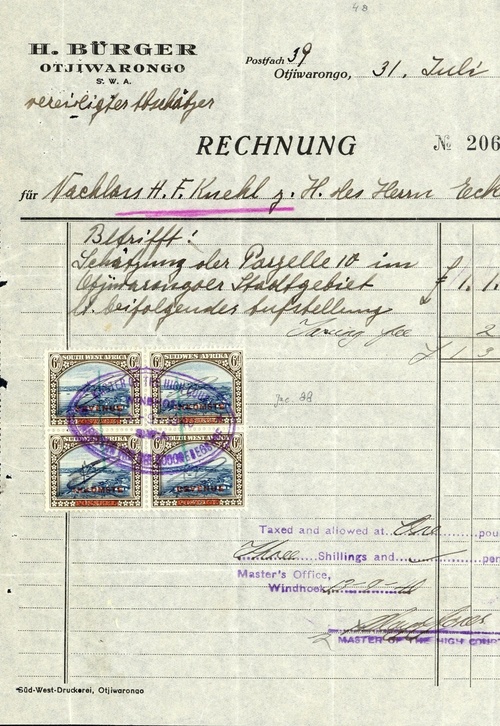 48
H. BÜRGER
OTJIWARONGO
S. W. A.
vereidigter Abschätzer
Postfach 39
Otjiwarongo, 31. Juli
RECHNUNG
№ 206
für Nachlass H. F. Kuehl z. H. des Herrn Eck
Betrifft:
Schätzung der Parzelle 10 im
Otjiwarongoer Stadtgebiet
lt. beifolgender Aufstellung
£ 1. 1.
Taxing fee 2
£ 1 3
6d SOUTH WEST AFRICA 6d
6d SUIDWES AFRIKA 6d
6d SOUTH WEST AFRICA 6d
6d SUIDWES AFRIKA 6d
MASTER OF THE HIGH COURT
Taxed and allowed at One pou
Three Shillings and pen
Master's Office,
Windhoek
MASTER OF THE HIGH COURT
Süd-West-Druckerei, Otjiwarongo